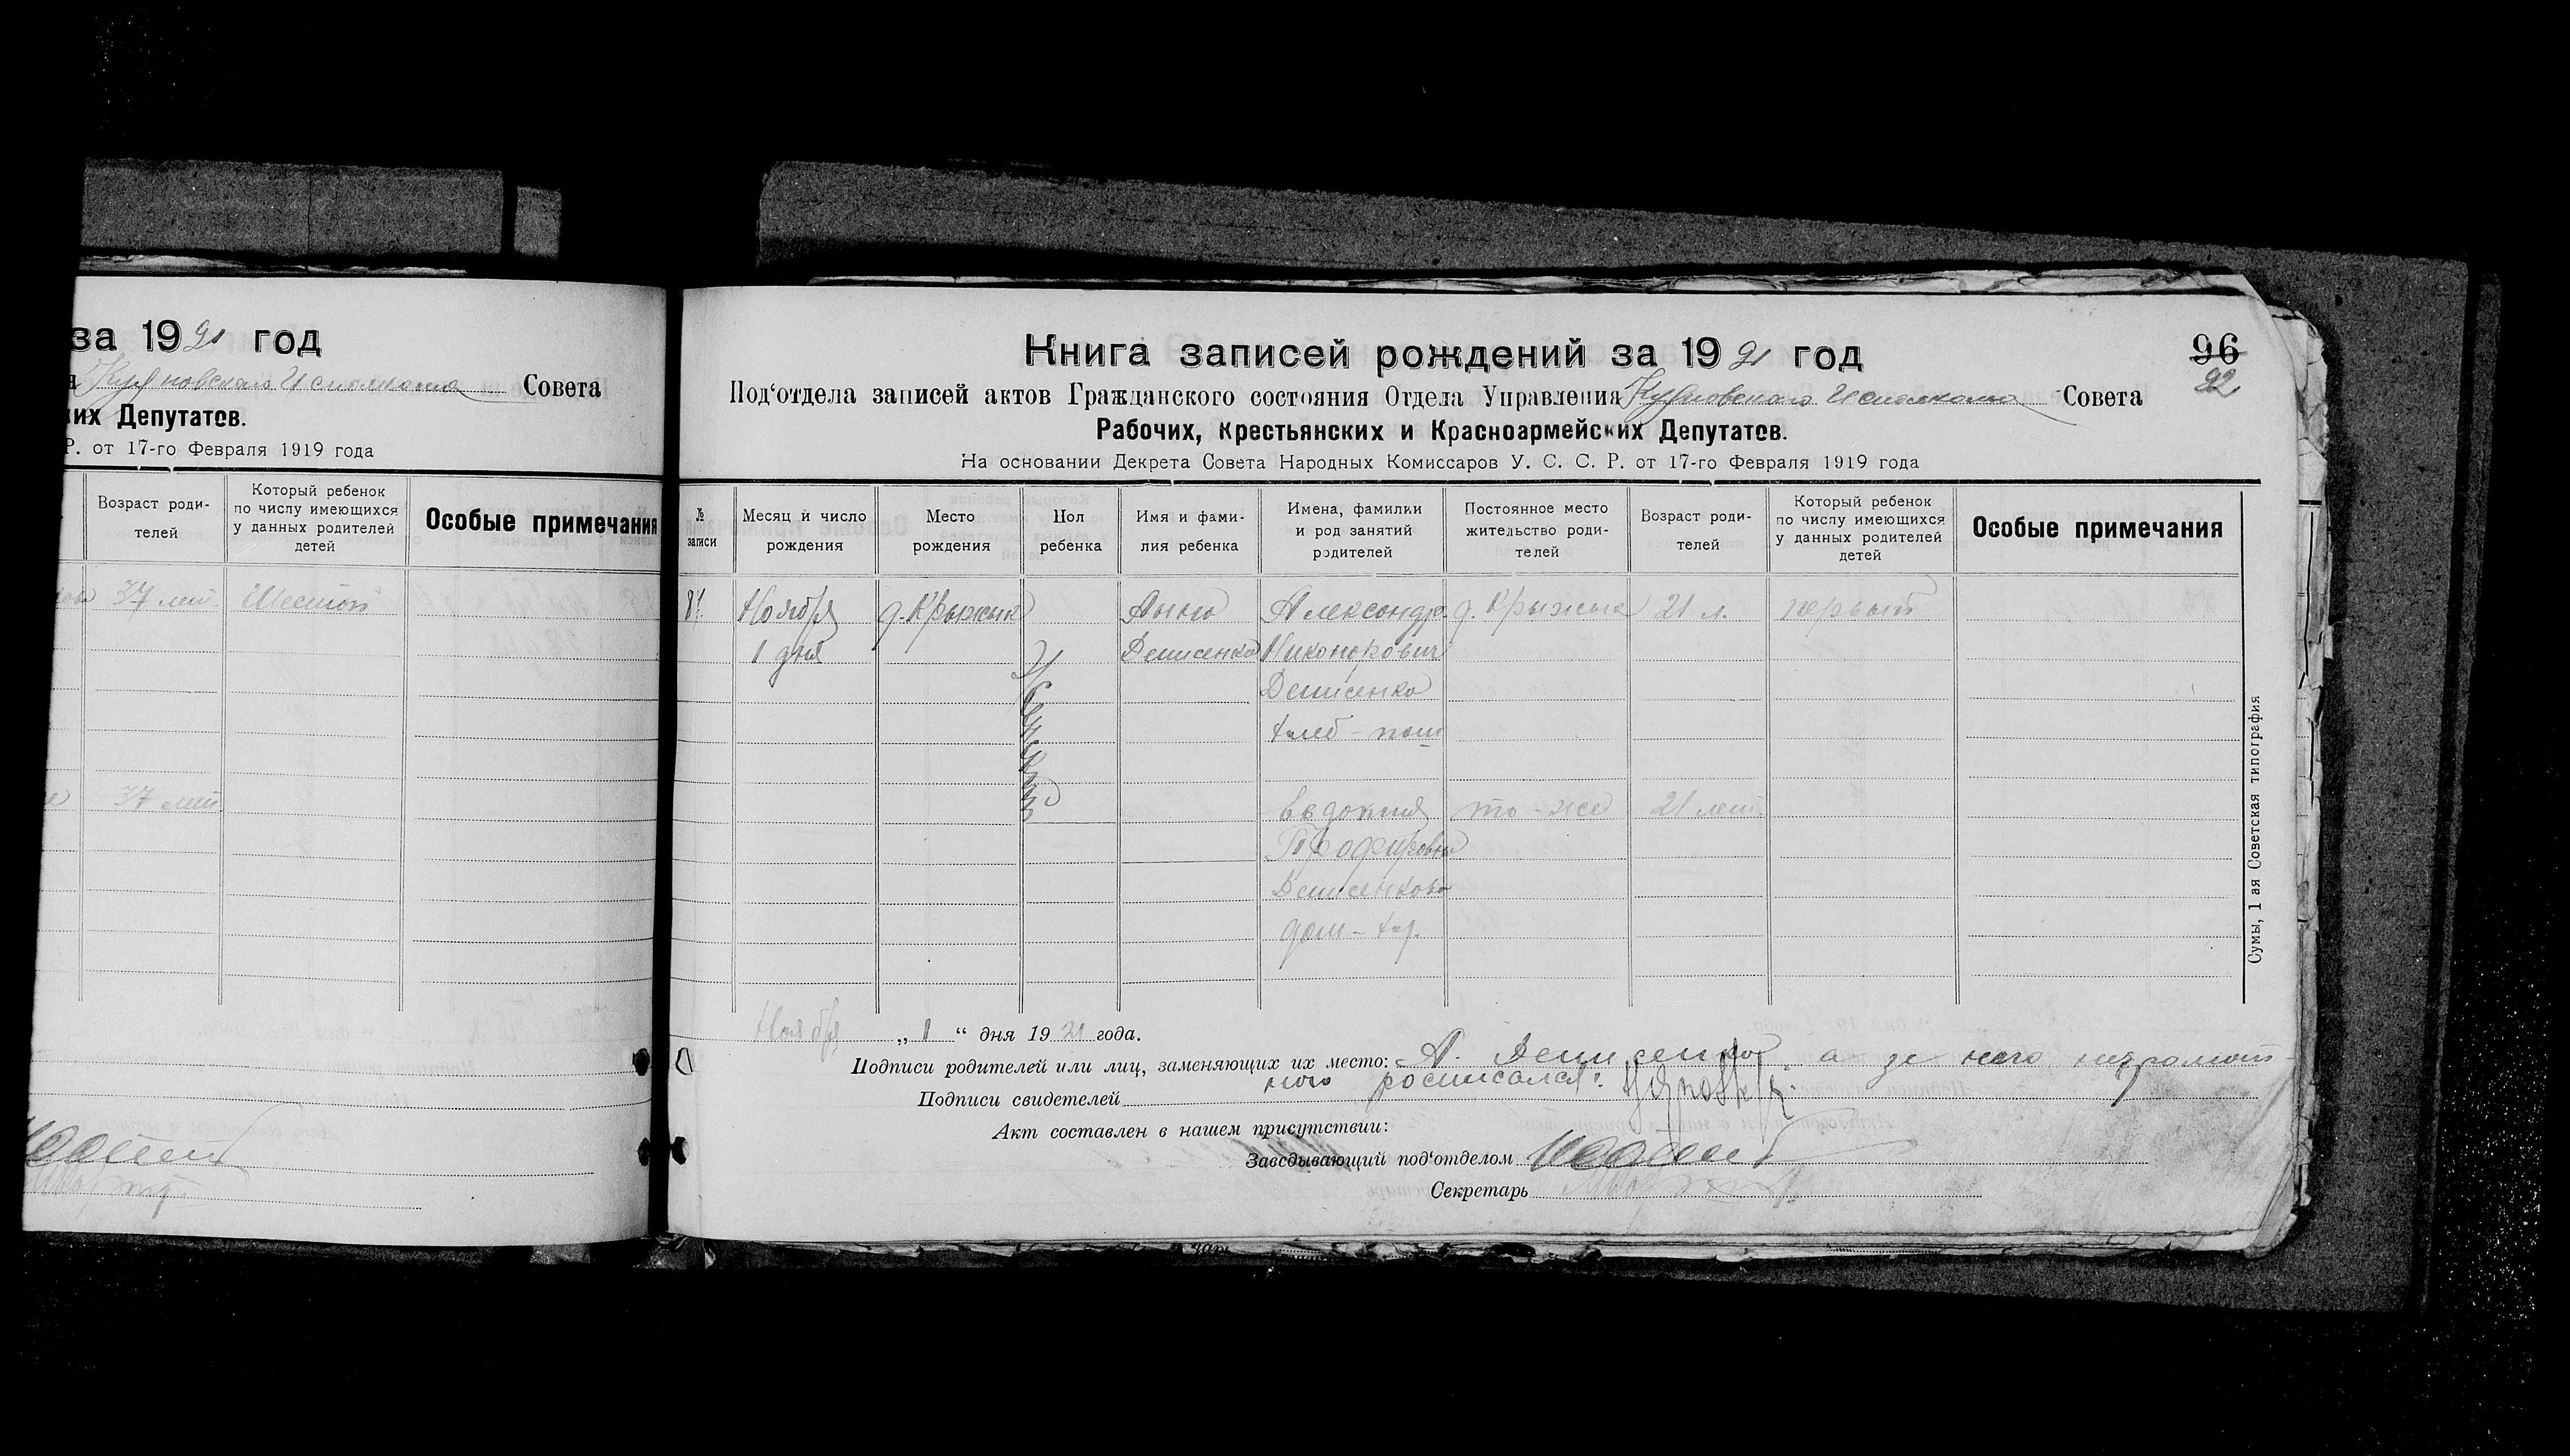 за 1921 год
Исполкома Совета
их Депутатов.
Р. от 17-го Февраля 1919 года
Возраст роди-
телей
Который ребенок
по числу имеющихся
у данных родителей
детей
Особые примечания
37 лет.
Шестой
37 лет
Книга записей рождений за 1921 год
96
92
Под‘отдела записей актов Гражданского состояния Отдела Управления Исполкома Совета
Рабочих, Крестьянских и Красноармейских Депутатов.
На основании Декрета Совета Народных Комиссаров У. С. С. Р. от 17-го Февраля 1919 года
№
записи
Месяц и число
рождения
Место
рождения
Пол
ребенка
Имя и фами-
лия ребенка
Имена, фамилии
и род занятий
родителей
Постоянное место
жительство роди-
телей
Возраст роди-
телей
Который ребенок
по числу имеющихся
у данных родителей
детей
Особые примечания
Ноября
1 дня
д. Крыжык
Женский
Анна
Денисенко
Александр
Никонорович
Денисенко
хлеб-паш
д. Крыжык
21 л.
первый
Евдокия
Денисенкова
дом-хоз.
то-же
21 лет.
Ноября „1“ дня 1921 года.
Подписи родителей или лиц, заменяющих их место: А. Денисенко а за него неграмот-
ного росписался:
Подписи свидетелей
Акт составлен в нашем присутствии:
Заведывающий под‘отделом
Секретарь
Сумы, 1 ая Советская типография